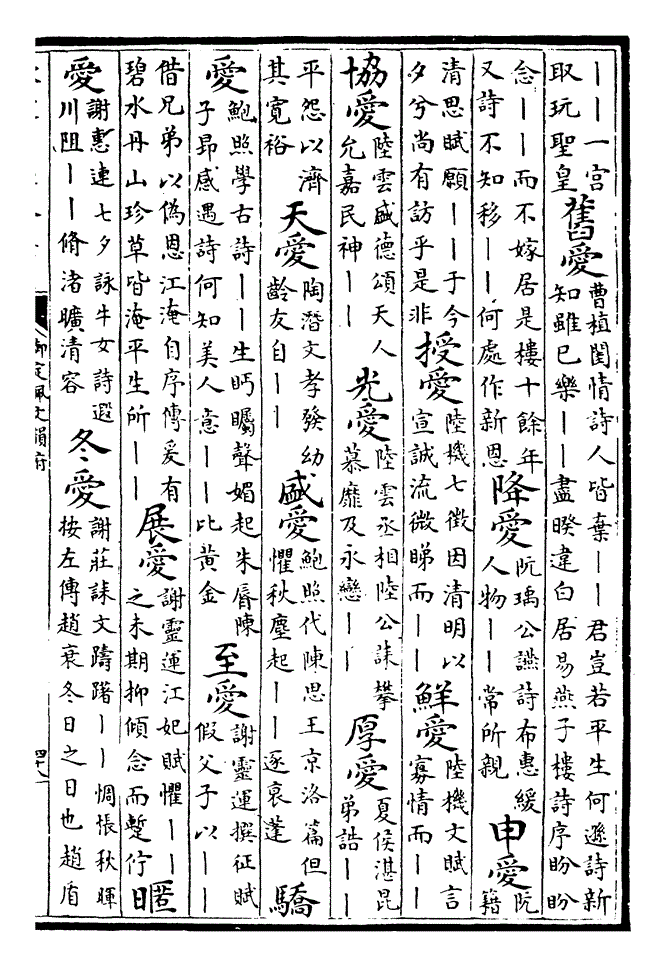 ｜｜一宫取玩聖皇舊愛曹植閨情詩人皆棄｜｜君豈若平生何遜詩新知雖已樂｜｜盡暌違白居易燕子樓詩序盼盼
念｜｜而不嫁居是樓十餘年又詩不知移｜｜何處作新恩降愛阮瑀公讌詩布惠緩人物｜｜常所親申愛阮籍
清思賦願｜｜于今夕兮尚有訪乎是非授愛陸機七徵因清明以宣誠流微睇而｜｜鮮愛陸機文賦言寡情而｜｜
協愛陸雲盛德頌天人允嘉民神｜｜光愛陸雲丞相陸公誄攀慕靡及永戀｜｜厚愛夏侯湛昆弟誥｜｜
平怨以濟其寛裕天愛陶潛文孝發幼齡友自｜｜盛愛鮑照代陳思王京洛篇但懼秋塵起｜｜逐衰蓬驕
愛鮑照學古詩｜｜生眄矚聲媚起朱脣陳子昻感遇詩何知美人意｜｜比黃金至愛謝靈運撰征賦假父子以｜｜
偕兄弟以偽恩江淹自序傳爰有碧水丹山珍草皆淹平生所｜｜展愛謝靈運江妃賦懼｜｜之未期抑傾念而蹔佇暱
愛謝惠連七夕詠牛女詩遐川阻｜｜脩渚曠清容冬愛謝莊誄文躊躇｜｜惆悵秋暉按左傳趙衰冬日之日也趙盾
御定佩文韻府